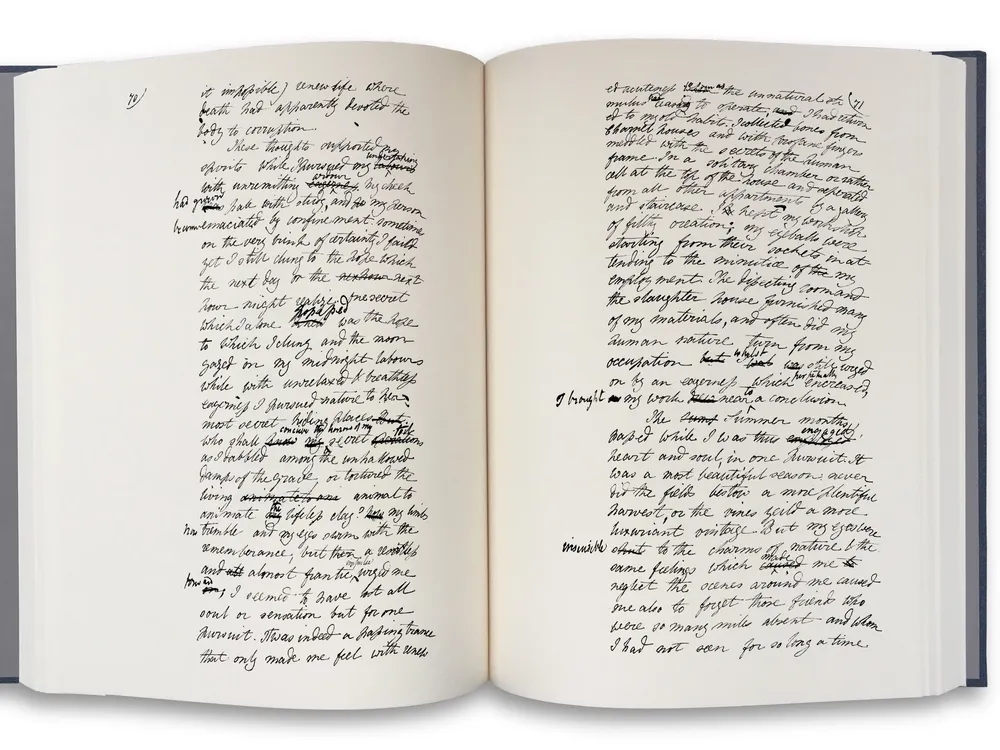 70)
it impossible) renew life where
death had apparently devoted the
body to corruption.
These thoughts supported my
spirits while I pursued my undertaking
with unremitting ardour My cheek
had grown pale with study, and my person
become emaciated by confinement sometimes
on the very brink of certainty I failed
yet I still clung to the hope which
the next day or the next
hour might realize. One secret
which I alone possessed was the hope
to which I clung and the moon
gazed on my midnight labours
while with unrelaxed & breathless
eagerness I pursued nature to her
most secret hiding places
who shall conceive the horrors of my secret toil
as I dabbled among the unhallowed
damps of the grave, or tortured the
living animal to
animate the lifeless clay? my limbs
now tremble and my eyes swim with the
remembrance, but then a resistless
and almost frantic impulse urged me
forward; I seemed to have lost all
soul or sensation but for one
pursuit. It was indeed a passing trance
that only made me feel with renew
71)
ed acuteness the unnatural sti
mulus ceasing to operate, I had return
ed to my old habits. I collected bones from
charnel houses and with profane fingers
meddled with the secrets of the human
frame. In a solitary chamber or rather
cell at the top of the house and seperated
from all other appartments by a gallery
and staircase. I kept my workshop
of filthy creation; my eyeballs were
starting from their sockets in at
tending to the minutiæ of my
employment. The disecting room and
the slaughter house furnished many
of my materials, and often did my
human nature turn from my
occupation whilst still urged
on by an eagerness which perpetually encreased,
I brought my work near to a conclusion.
The Summer months
passed while I was thus engaged,
heart and soul, in one pursuit. It
was a most beautiful season: never
did the fields bestow a more plentiful
harvest, or the vines yield a more
luxuriant vintage. But my eyes were
insensible to the charms of nature & the
same feelings which made me
neglect the scenes around me caused
me also to forget those friends who
were so many miles absent and whom
I had not seen for so long a time